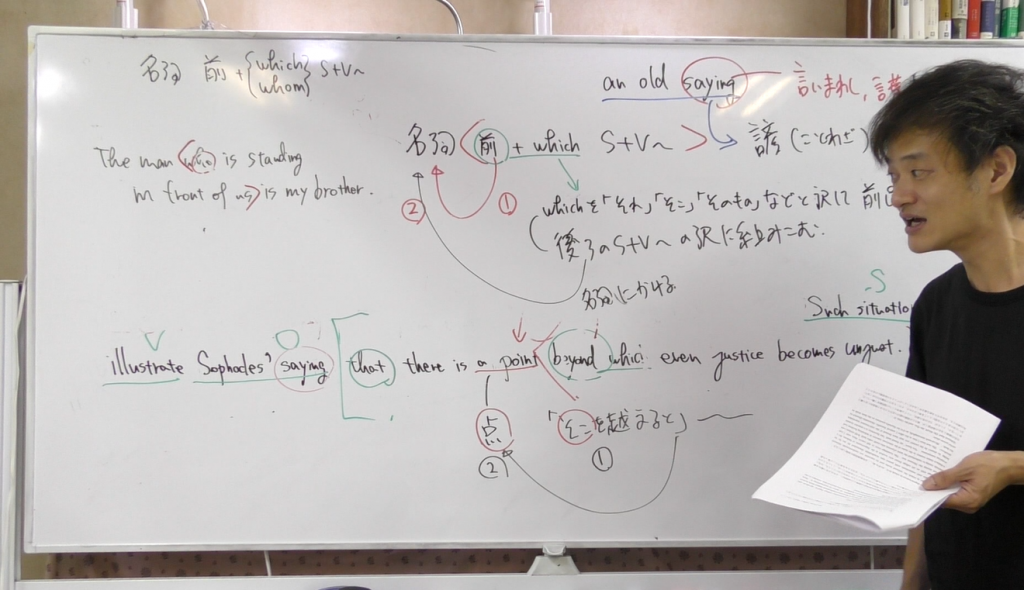 名詞 前+{which whom} S+V～
an old saying 言いまわし,
名詞 <前 + which S+V～> 諺 (ことわざ)
The man who is standing
in front of us> is my brother.
② ①
whichを「それ」「そこ」「そのもの」などと訳して 前の
後ろのS+V～の訳に組みこむ.
名詞にかける
S
Such situation
V O
illustrate Sophocles' saying [that there is a point <beyond which even justice becomes unjust.
点 「そこを越えると」
② ①